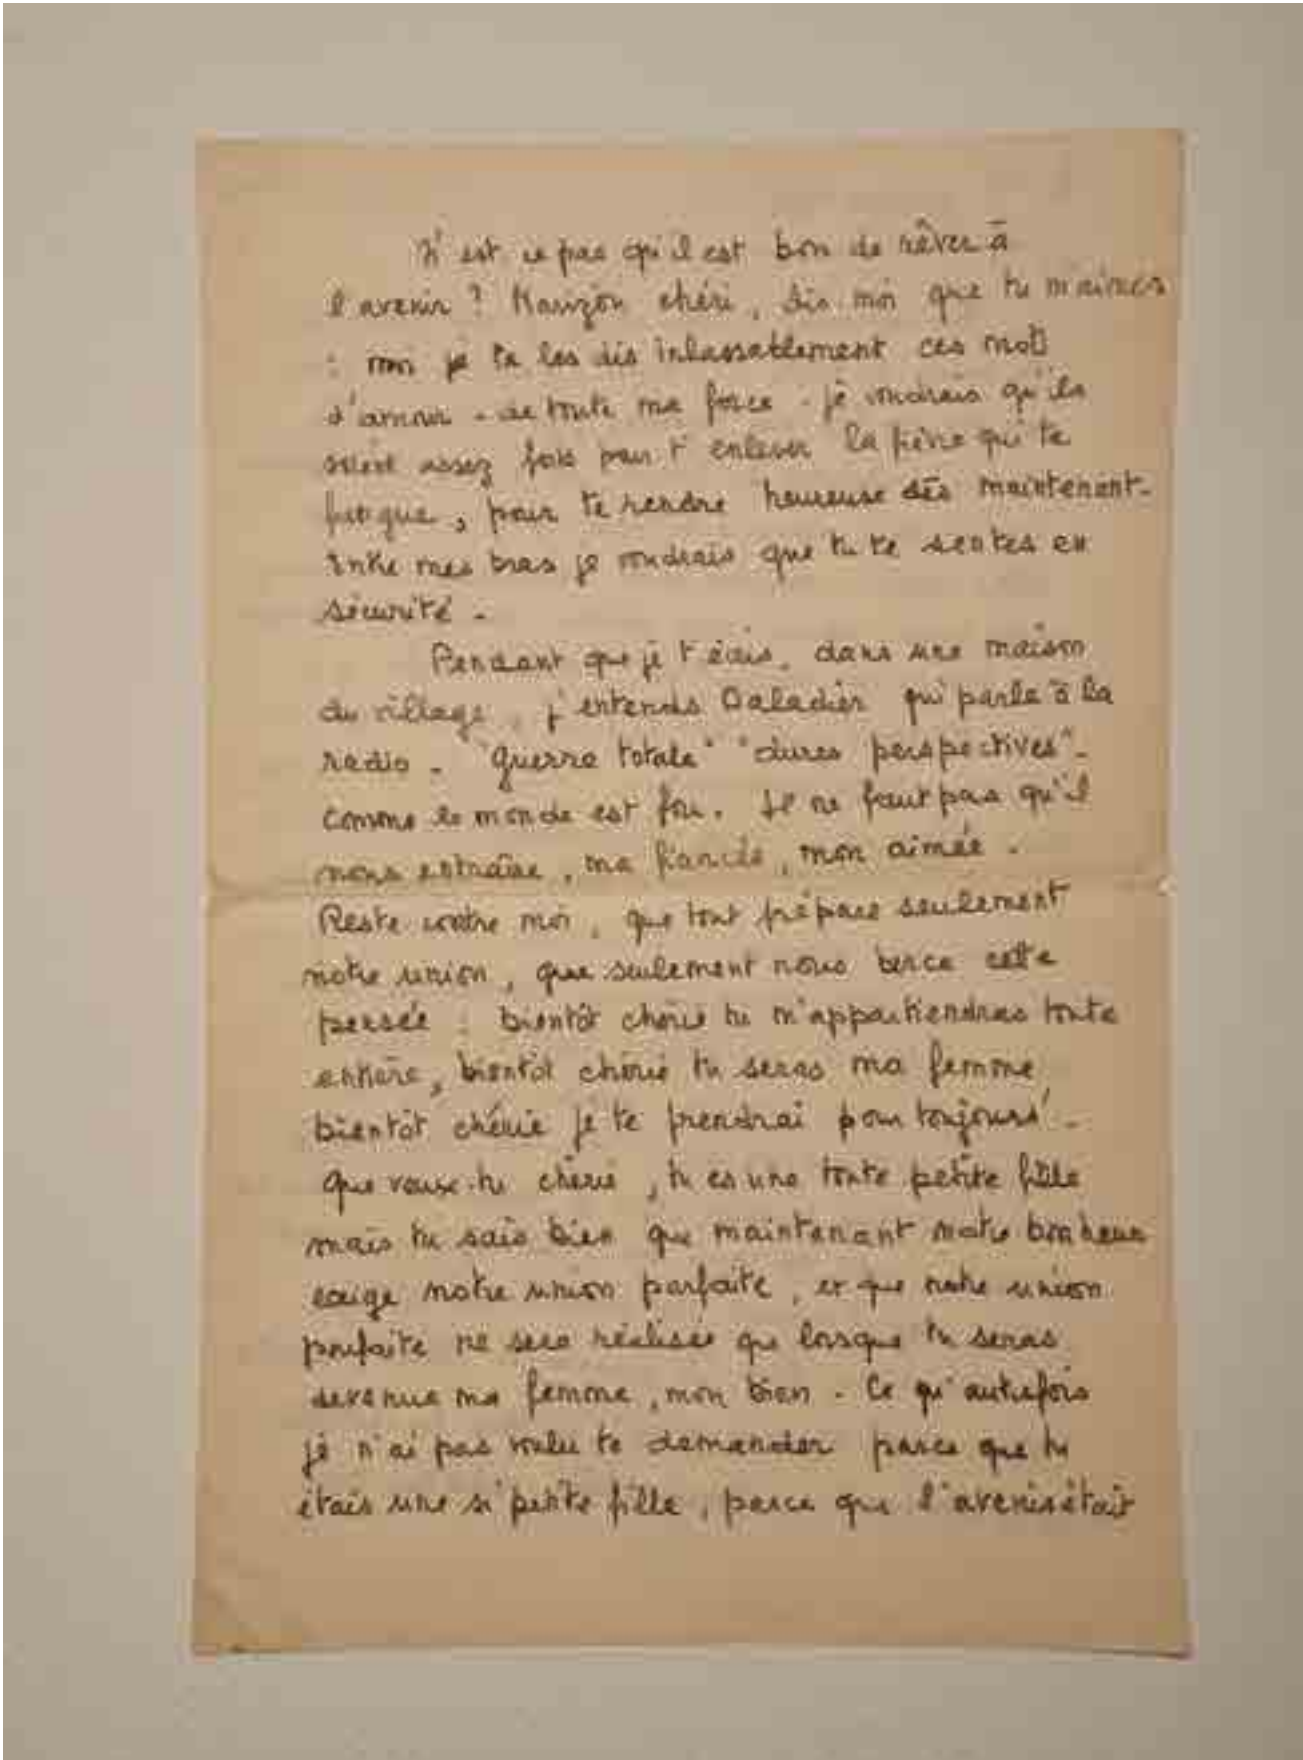 N'est ce pas qu'il est bon de rêver à
l'avenir ? chéri, dis moi que tu m'aimes
: moi je te les dis inlassablement ces mots
d'amour - de toute ma force - je voudrais qu'ils
soient assez forts pour t'enlever la fièvre qui te
fatigue, pour te rendre heureuse dès maintenant -
Entre mes bras je voudrais que tu te sentes en
sécurité -
Pendant que je t'écris, dans une maison
du village, j'entends Daladier qui parle à la
radio - "guerre totale" "dures perspectives" -
comme le monde est fou. Il ne faut pas qu'il
nous entraîne, ma fiancée, mon aimée -
Reste contre moi, que tout prépare seulement
notre union, que seulement nous berce cette
pensée : bientôt chérie tu m'appartiendras toute
entière, bientôt chérie tu seras ma femme,
bientôt chérie je te prendrai pour toujours -
Que veux-tu chérie, tu es une toute petite fille
mais tu sais bien que maintenant notre bonheur
exige notre union parfaite, et que notre union
parfaite ne sera réalisée que lorsque tu seras
devenue ma femme, mon bien - Ce qu'autrefois
je n'ai pas voulu te demander parce que tu
étais une si petite fille, parce que l'avenir était